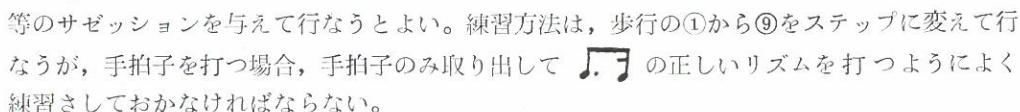 等のサゼッションを与えて行なうとよい。練習方法は，歩行の①から⑨をステップに変えて行
なうが，手拍子を打つ場合，手拍子のみ取り出して の正しいリズムを打つようによく
練習さしておかなければならない。